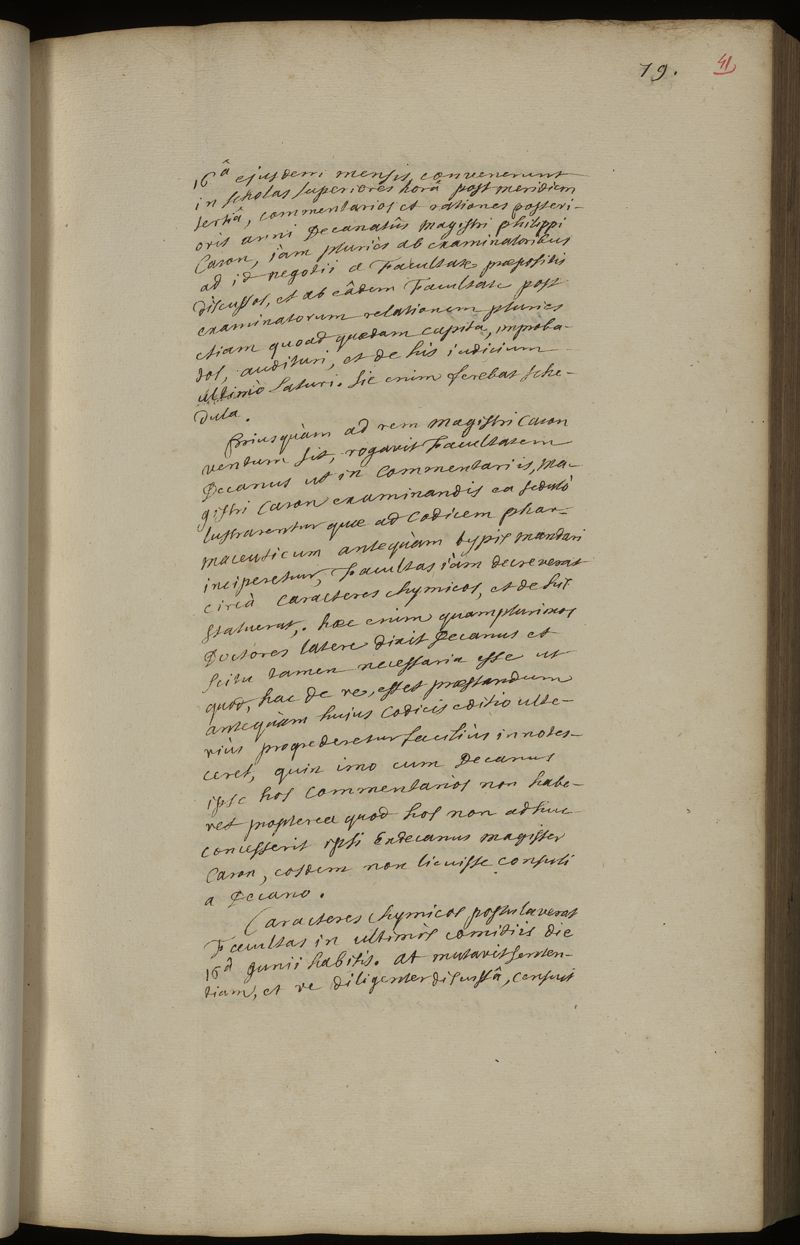 79. 41
16â ejusdem mensis, convenerunt
in scholas superiores horâ post meridiem
tertiâ, commentarios et rationes posteri-
oris anni Decanatûs Magistri philippi
Caron, jàm pluriès ab examinatoribus
ad id negotii a Facultate præpositis
discussos, et ab eâdem Facultate post
examinatorum relationem pluries
etiam quoad quædam capita, improba-
tos, audituri, et de his iudicium
ultimò laturi. sic enim ferebat sche-
dula.
Priusquàm ad rem Magistri Caron
ventum sit, rogavit Facultatem
Decanus ut in Commentariis, Ma-
gistri Caron examinandis ea sedulò
lustrarentur quæ ad Codicem phar-
maceuticum antequàm typis mandari
inciperetur, Facultas iàm decreverat
circà caracteres chymicos, et de his
statuerat. hæc enim quamplurimos
Doctores latere dixit Decanus et
scitu tamen necessaria esse ut
quod, hac de re, esset præstandum
antequàm hujus Codicis editio ulte-
riùs progrederetur faciliùs innotes-
ceret, quin imo cum Decanus
ipse hos Commentarios non habe-
ret propterea quod hos non adhuc
concesserit ipsi Exdecanus magister
Caron, eosdem non licuisse consuli
a Decano.
Caracteres chymicos postulaverat
Facultas in ultimis comitiis die
16â Junii habitis. at mutavit senten-
tiam, et re diligenter discussâ, censuit